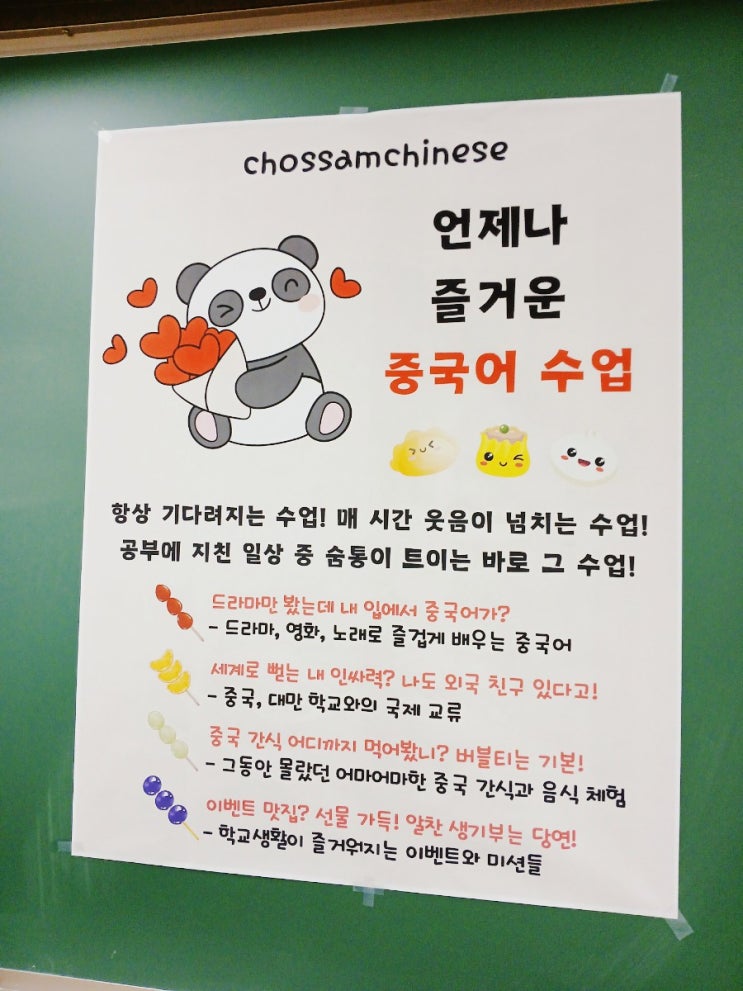 chossamchinese
언제나
즐거운
중국어 수업
항상 기다려지는 수업! 매 시간 웃음이 넘치는 수업!
공부에 지친 일상 중 숨통이 트이는 바로 그 수업!
드라마만 봤는데 내 입에서 중국어가?
- 드라마, 영화, 노래로 즐겁게 배우는 중국어
세계로 뻗는 내 인싸력? 나도 외국 친구 있다고!
- 중국, 대만 학교와의 국제 교류
중국 간식 어디까지 먹어봤니? 버블티는 기본!
- 그동안 몰랐던 어마어마한 중국 간식과 음식 체험
이벤트 맛집? 선물 가득! 알찬 생기부는 당연!
- 학교생활이 즐거워지는 이벤트와 미션들